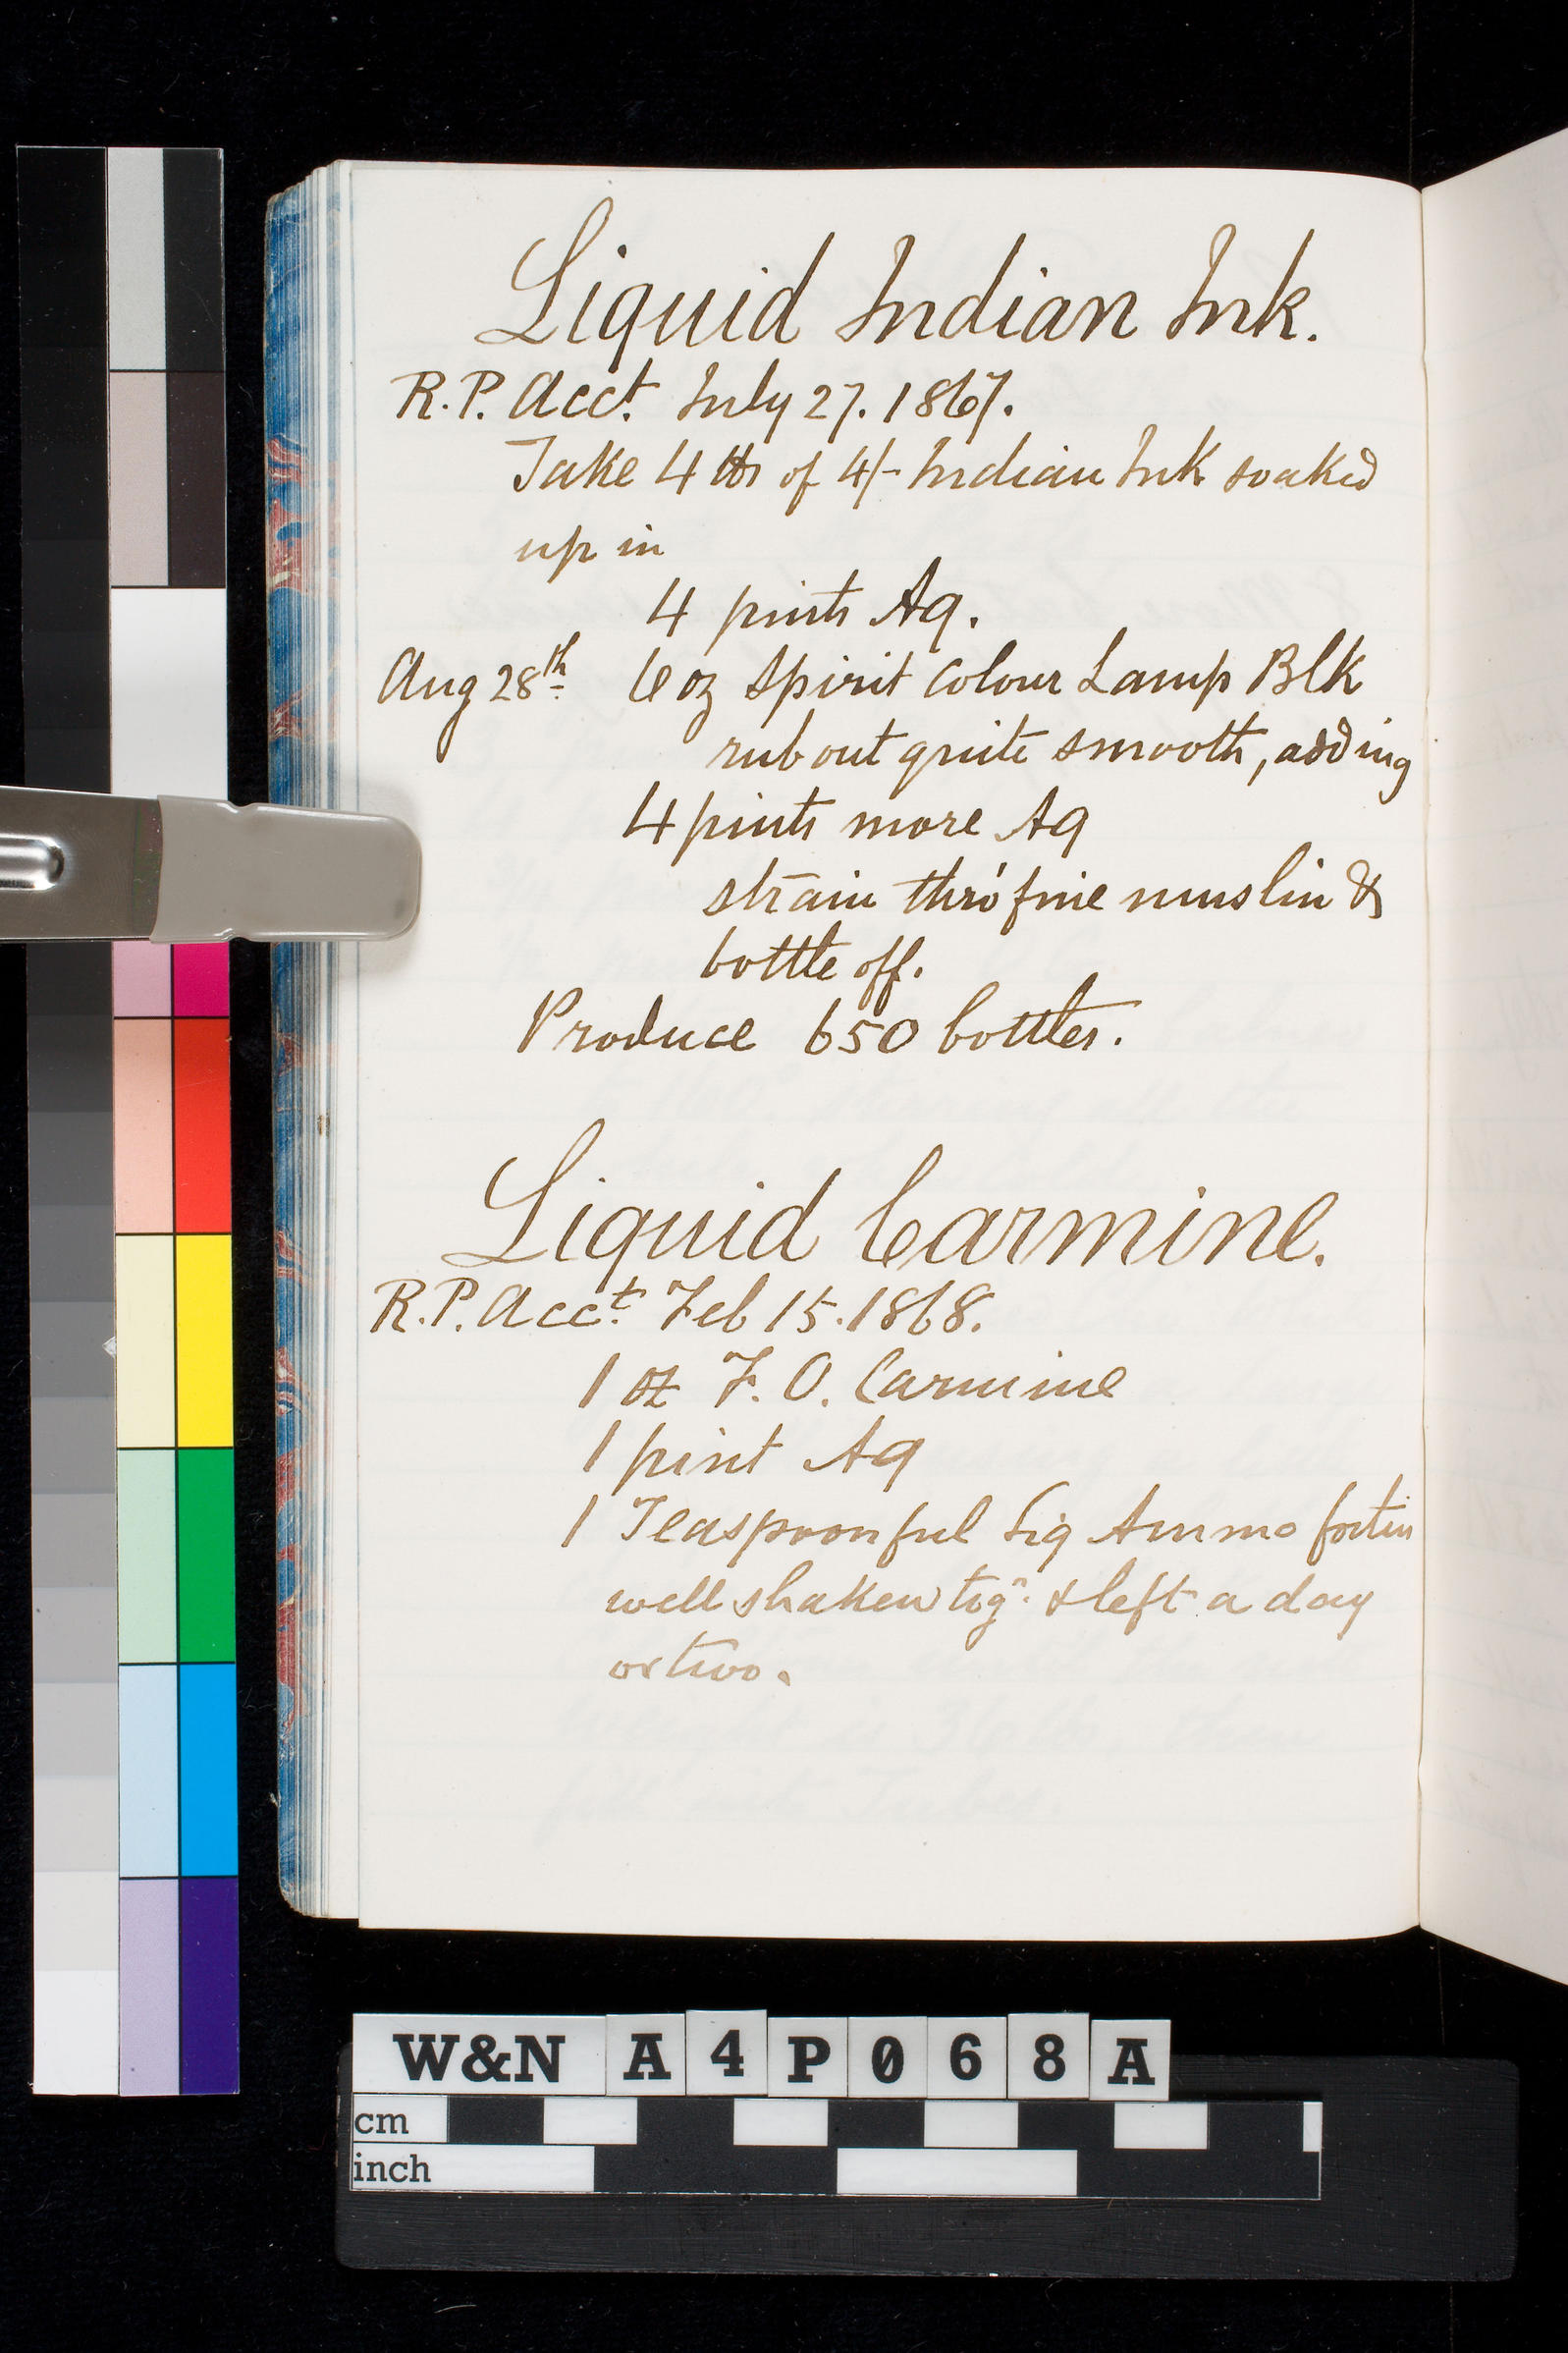 Liquid Indian Ink.
R.P. Acct. July 27. 1867.
Take 4 lbs of 4/- Indian Ink soaked
up in
4 pints Aq.
Aug 28th 6 oz Spirit Colour Lamp Blk
rub out quite smooth, adding
4 pints more Aq
strain thro' fine muslin &
bottle off.
Produce 650 bottles.
Liquid Carmine.
R.P. Acct. Feb 15. 1868.
1 oz F. O. Carmine
1 pint Aq
1 Teaspoonful Liq Ammo fortis
well shaken togr. & left a day
or two.
W&N A4P068A
cm
inch